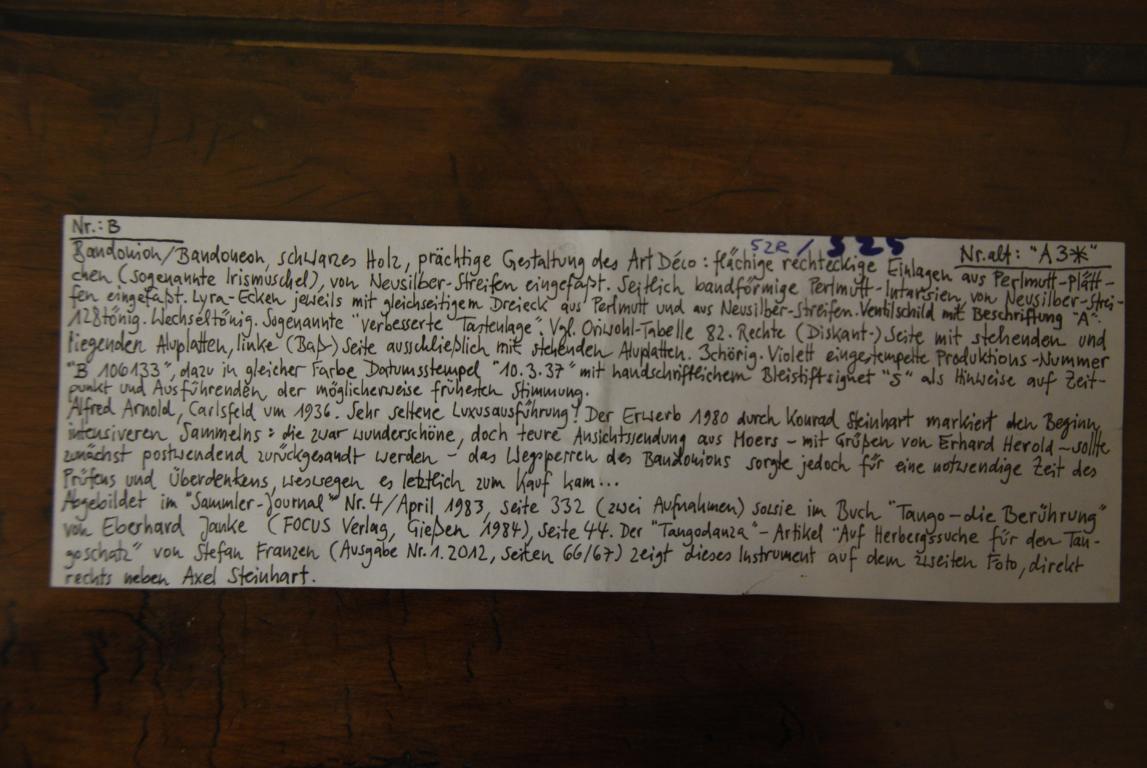 Nr.: B
52R / 525
Nr. alt: "A3*"
Bandonion/Bandoneon, schwarzes Holz, prächtige Gestaltung des Art Déco: flächige rechteckige Einlagen aus Perlmutt-Plätt-
chen (sogenannte Irismuschel), von Neusilber-Streifen eingefaßt. Seitlich bandförmige Perlmutt-Intarsien, von Neusilber-Strei-
fen eingefaßt. Lyra-Ecken jeweils mit gleichseitigem Dreieck aus Perlmutt und aus Neusilber-Streifen. Ventilschild mit Beschriftung "A".
128tönig. Wechseltönig. Sogenannte "verbesserte Tastenlage". Vgl. Oriwohl-Tabelle 82. Rechte (Diskant-) Seite mit stehenden und
liegenden Aluplatten, linke (Baß-) Seite ausschließlich mit stehenden Aluplatten. 3chörig. Violett eingestempelte Produktions-Nummer
"B 106133", dazu in gleicher Farbe Datumsstempel "10.3.37" mit handschriftlichem Bleistiftsignet "S" als Hinweise auf Zeit-
punkt und Ausführenden der möglicherweise frühesten Stimmung.
Alfred Arnold, Carlsfeld um 1936. Sehr seltene Luxusausführung! Der Erwerb 1980 durch Konrad Steinhart markiert den Beginn
intensiveren Sammelns: die zwar wunderschöne, doch teure Ansichtssendung aus Moers – mit Grüßen von Erhard Herold – sollte
zunächst postwendend zurückgesandt werden – das Wegsperren des Bandonions sorgte jedoch für eine notwendige Zeit des
Prüfens und Überdenkens, weswegen es letztlich zum Kauf kam...
Abgebildet im "Sammler-Journal" Nr. 4/April 1983, Seite 332 (zwei Aufnahmen) sowie im Buch "Tango – die Berührung"
von Eberhard Janke (FOCUS Verlag, Gießen 1984), Seite 44. Der "Tangodanza"-Artikel "Auf Herbergssuche für den Tan-
goschatz" von Stefan Franzen (Ausgabe Nr. 1. 2012, Seiten 66/67) zeigt dieses Instrument auf dem zweiten Foto, direkt
rechts neben Axel Steinhart.